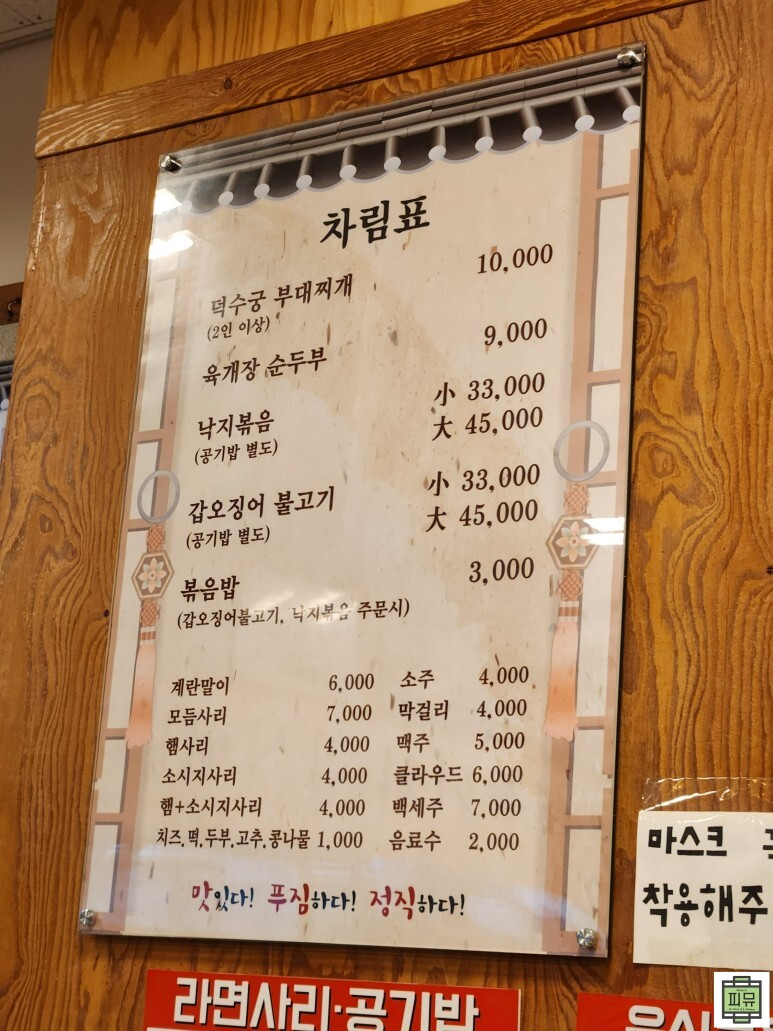 차림표
덕수궁 부대찌개 10,000
(2인 이상)
육개장 순두부 9,000
낙지볶음 小 33,000
(공기밥 별도) 大 45,000
갑오징어 불고기 小 33,000
(공기밥 별도) 大 45,000
볶음밥 3,000
(갑오징어불고기, 낙지볶음 주문시)
계란말이 6,000 소주 4,000
모듬사리 7,000 막걸리 4,000
햄사리 4,000 맥주 5,000
소시지사리 4,000 클라우드 6,000
햄+소시지사리 4,000 백세주 7,000
치즈.떡.두부.고추.콩나물 1,000 음료수 2,000
맛있다! 푸짐하다! 정직하다!
마스크
착용해주
라면사리·공기밥
피뮤